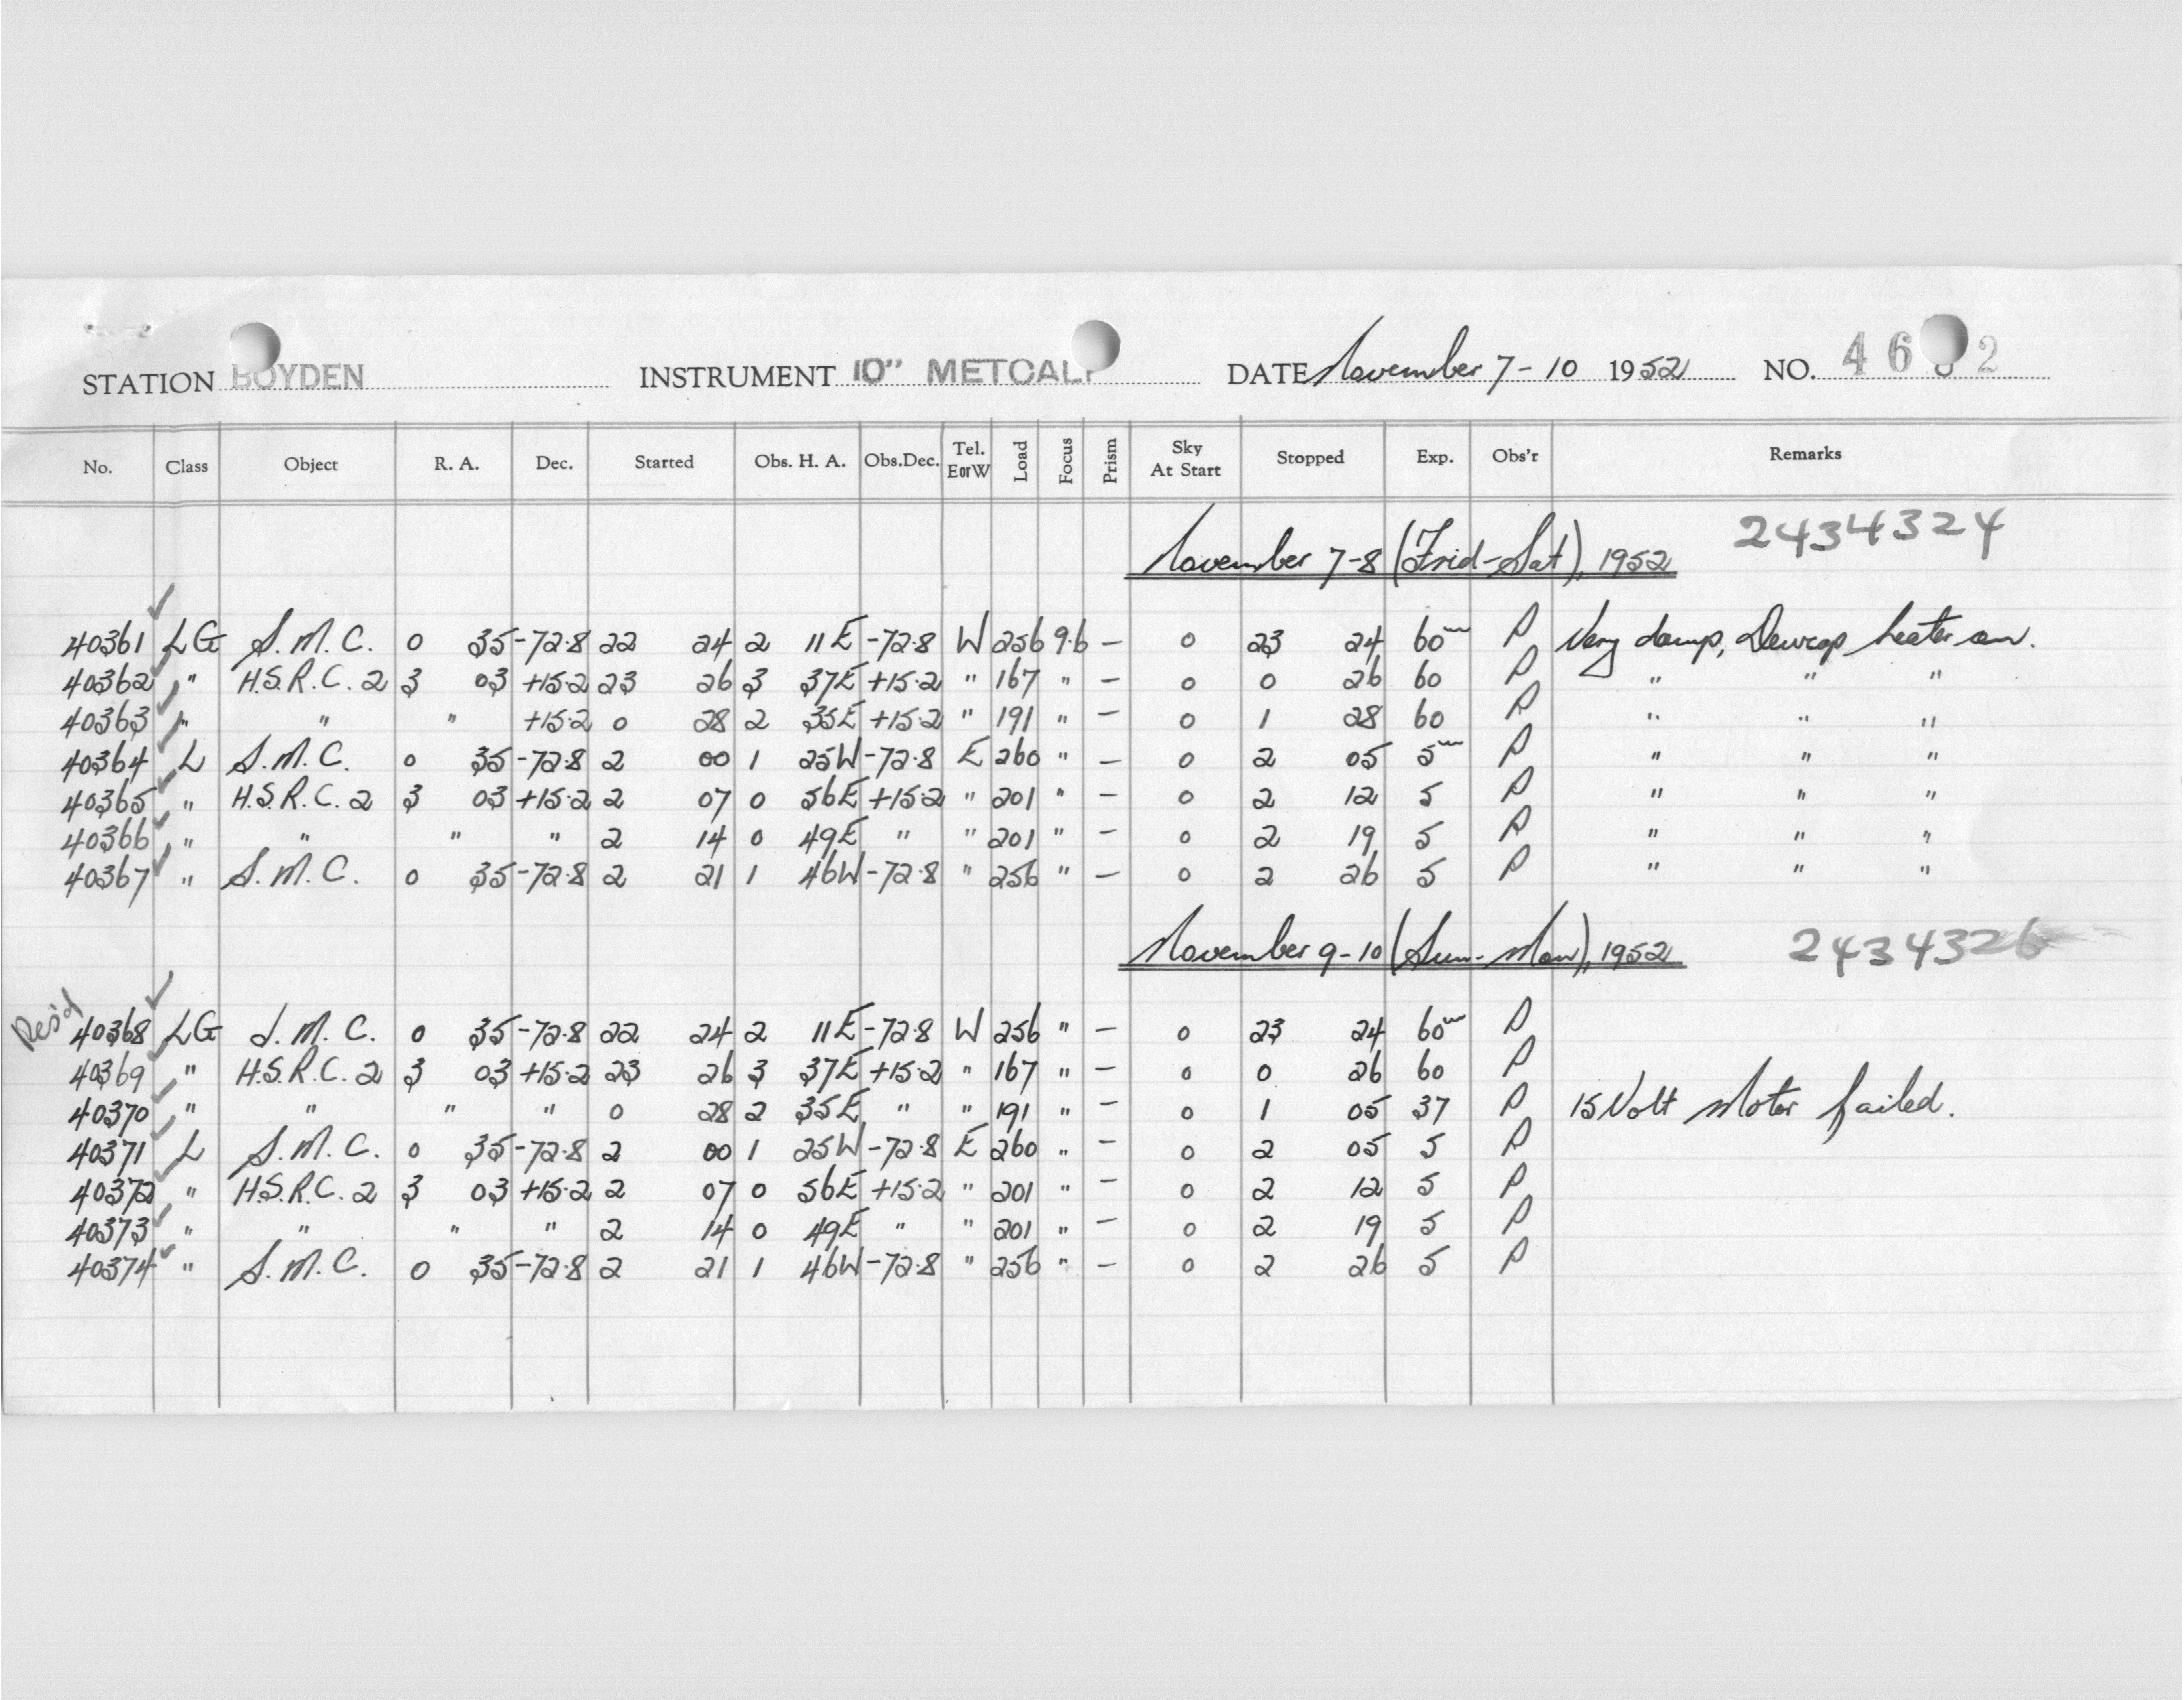 STATION BOYDEN INSTRUMENT 10" METCALF DATE November 7-10 1952 NO. 46 2
No. Class Object R. A. Dec. Started Obs. H. A. Obs.Dec. Tel. EorW Load Focus Prism Sky At Start Stopped Exp. Obs'r Remarks
November 7-8 (Frid-Sat), 1952 2434324
40361 LG S.M.C. 0 35 -72.8 22 24 2 11E -72.8 W 256 9.6 — 0 23 24 60m P Very damp, Dewcap heater on.
40362 " H.S.R.C. 2 3 03 +15.2 23 26 3 37E +15.2 " 167 " — 0 0 26 60 P " " "
40363 " " " +15.2 0 28 2 35E +15.2 " 191 " — 0 1 28 60 P " " "
40364 L S.M.C. 0 35 -72.8 2 00 1 25W -72.8 E 260 " — 0 2 05 5m P " " "
40365 " H.S.R.C. 2 3 03 +15.2 2 07 0 56E +15.2 " 201 " — 0 2 12 5 P " " "
40366 " " " " 2 14 0 49E " " 201 " — 0 2 19 5 P " " "
40367 " S.M.C. 0 35 -72.8 2 21 1 46W -72.8 " 256 " — 0 2 26 5 P " " "
November 9-10 (Sun-Mon), 1952 2434326
Res'd 40368 LG S.M.C. 0 35 -72.8 22 24 2 11E -72.8 W 256 " — 0 23 24 60m P
40369 " H.S.R.C. 2 3 03 +15.2 23 26 3 37E +15.2 " 167 " — 0 0 26 60 P
40370 " " " " 0 28 2 35E " " 191 " — 0 1 05 37 P 15 Volt Motor failed.
40371 L S.M.C. 0 35 -72.8 2 00 1 25W -72.8 E 260 " — 0 2 05 5 P
40372 " H.S.R.C. 2 3 03 +15.2 2 07 0 56E +15.2 " 201 " — 0 2 12 5 P
40373 " " " " 2 14 0 49E " " 201 " — 0 2 19 5 P
40374 " S.M.C. 0 35 -72.8 2 21 1 46W -72.8 " 256 " — 0 2 26 5 P